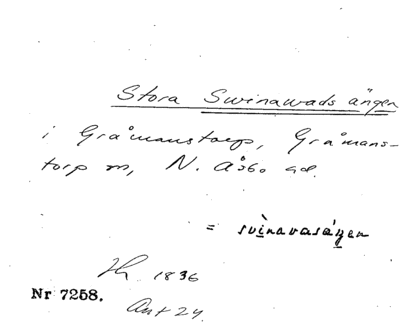 Stora Swinawads ängen
i Gråmanstorp, Gråmans-
torp sn, N. Åsbo hd.
= svìnavasáŋen
Lh 1836
Nr 7258.
Akt 24